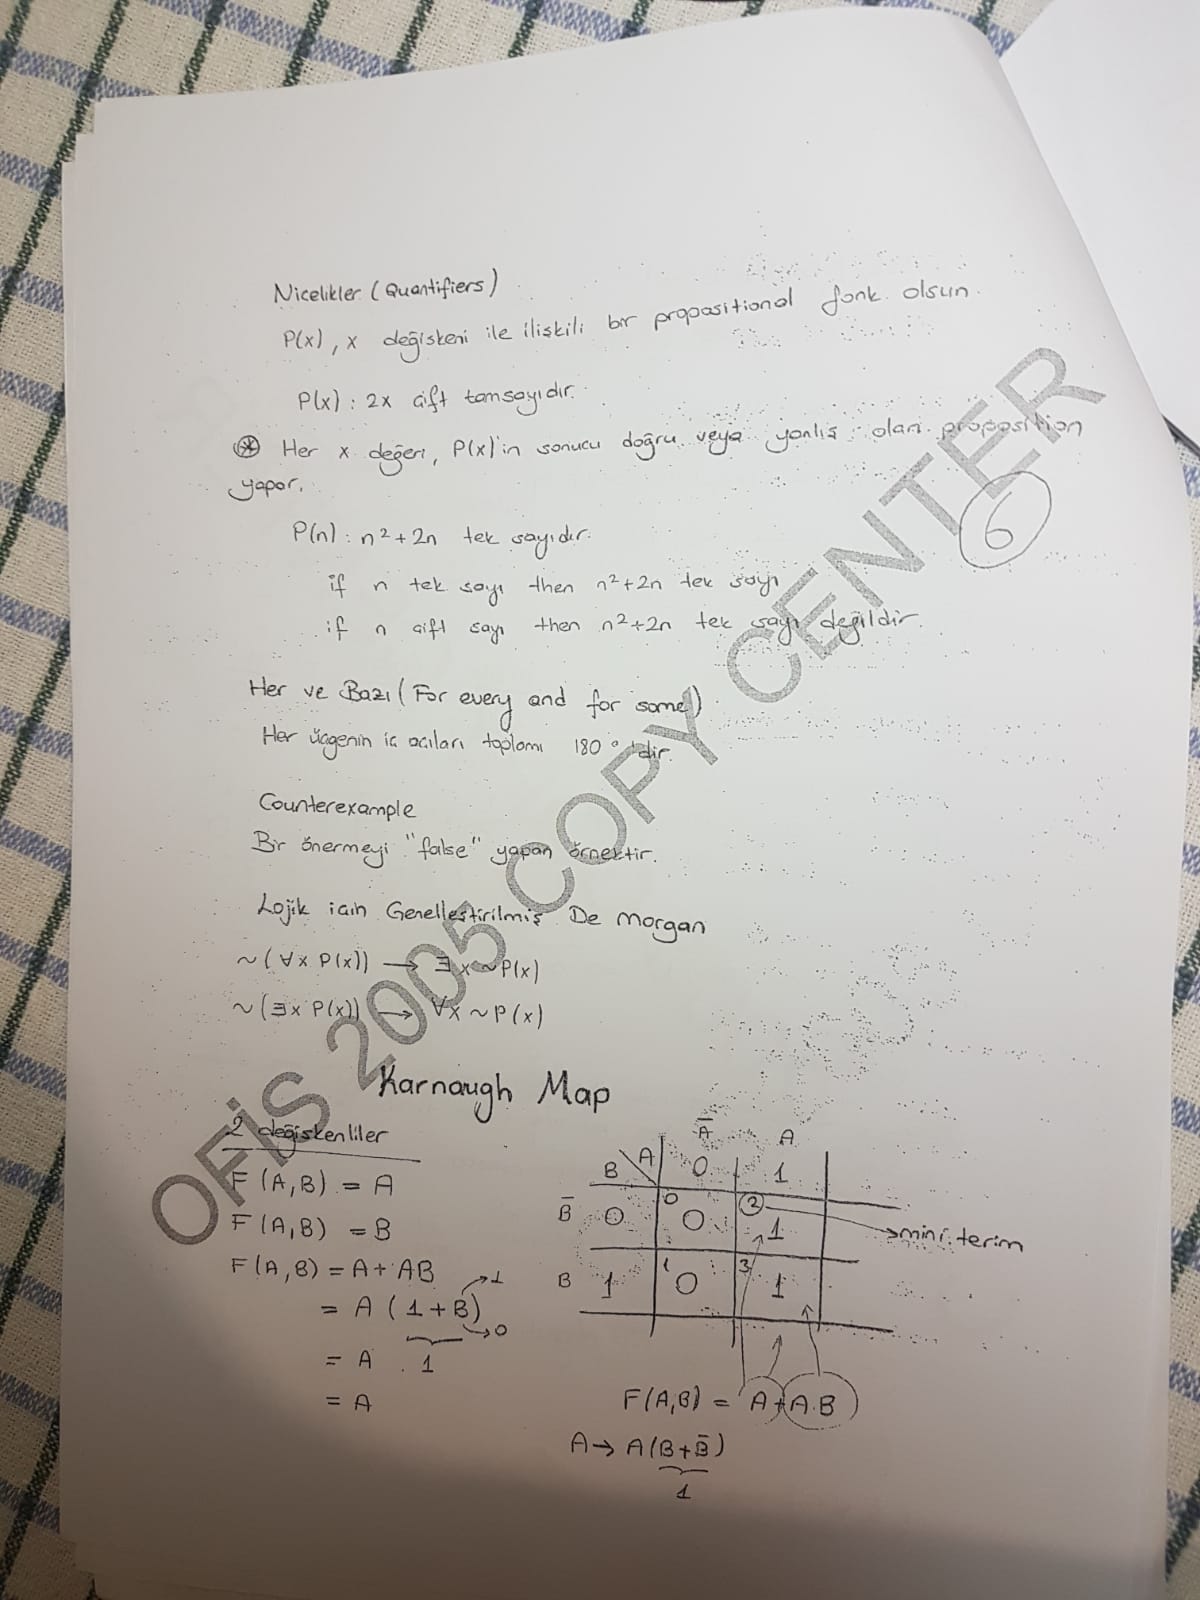 Nicelikler (Quantifiers)
P(x), x değişkeni ile ilişkili bir propositional fonk. olsun.
P(x) : 2x çift tamsayıdır.
* Her x değeri, P(x)'in sonucu doğru veya yanlış olan proposition
yapar.
6
P(n) : n²+2n tek sayıdır.
if n tek sayı then n²+2n tek sayı
if n çift sayı then n²+2n tek sayı değildir.
Her ve Bazı (For every and for some)
Her üçgenin iç açıları toplamı 180°'dir.
Counterexample
Bir önermeyi "false" yapan örnektir.
Lojik için Genelleştirilmiş De Morgan
~(∀x P(x)) → ∃x ~P(x)
~(∃x P(x)) → ∀x ~P(x)
Karnaugh Map
2 değişkenliler
F(A,B) = A
F(A,B) = B
F(A,B) = A + AB
= A (1+B) →1 →0
= A . 1
= A
Ā A
B A 0 1
B̄ 0 0 0 2 1 → mini terim
B 1 1 0 3 1
F(A,B) = A + A.B
A → A(B+B̄)
1
OFİS 2005 COPY CENTER